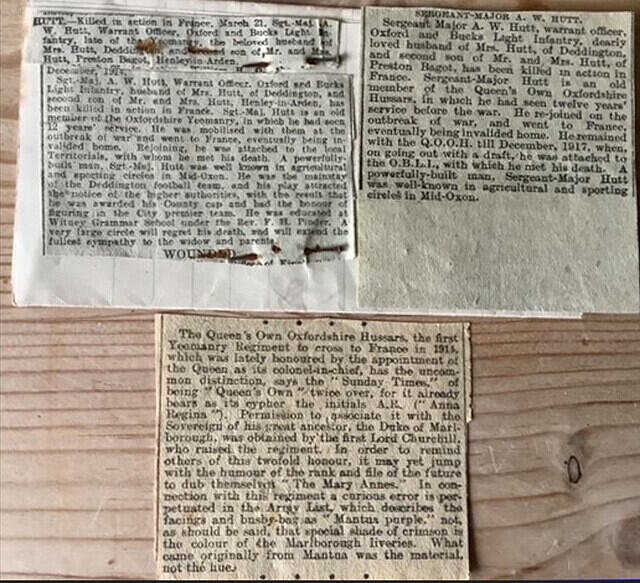 HUTT.—Killed in action in France, March 21, Sgt.-Maj. A.
W. Hutt, Warrant Officer, Oxford and Bucks Light In-
fantry, late of the Yeomanry, the beloved husband of
Mrs. Hutt, Deddington, and second son of Mr. and Mrs.
Hutt, Preston Bagot, Henley-in-Arden.
December, 1917.
Sgt.-Maj. A. W. Hutt, Warrant Officer, Oxford and Bucks
Light Infantry, husband of Mrs. Hutt, of Deddington, and
second son of Mr. and Mrs. Hutt, Henley-in-Arden, has
been killed in action in France. Sgt.-Maj. Hutt is an old
member of the Oxfordshire Yeomanry, in which he had seen
12 years' service. He was mobilised with them at the
outbreak of war and went to France, eventually being in-
valided home. Rejoining, he was attached to the local
Territorials, with whom he met his death. A powerfully-
built man, Sgt.-Maj. Hutt was well known in agricultural
and sporting circles in Mid-Oxon. He was the mainstay
of the Deddington football team, and his play attracted
the notice of the higher authorities, with the result that
he was awarded his County cap and had the honour of
figuring in the City premier team. He was educated at
Witney Grammar School under the Rev. F. H. Pinder. A
very large circle will regret his death, and will extend the
fullest sympathy to the widow and parents.
WOUNDED
SERGEANT-MAJOR A. W. HUTT.
Sergeant Major A. W. Hutt, warrant officer,
Oxford and Bucks Light Infantry, dearly
loved husband of Mrs. Hutt, of Deddington,
and second son of Mr. and Mrs. Hutt, of
Preston Bagot, has been killed in action in
France. Sergeant-Major Hutt is an old
member of the Queen's Own Oxfordshire
Hussars, in which he had seen twelve years'
service before the war. He re-joined on the
outbreak of war, and went to France,
eventually being invalided home. He remained
with the Q.O.O.H. till December, 1917, when,
on going out with a draft, he was attached to
the O.B.L.I., with which he met his death. A
powerfully-built man, Sergeant-Major Hutt
was well-known in agricultural and sporting
circles in Mid-Oxon.
The Queen's Own Oxfordshire Hussars, the first
Yeomanry Regiment to cross to France in 1914,
which was lately honoured by the appointment of
the Queen as its colonel-in-chief, has the uncom-
mon distinction, says the "Sunday Times," of
being "Queen's Own" twice over, for it already
bears as its cypher the initials A.R. ("Anna
Regina"). Permission to associate it with the
Sovereign of his great ancestor, the Duke of Marl-
borough, was obtained by the first Lord Churchill,
who raised the regiment. In order to remind
others of this twofold honour, it may yet jump
with the humour of the rank and file of the future
to dub themselves "The Mary Annes." In con-
nection with this regiment a curious error is per-
petuated in the Army List, which describes the
facings and busby-bag as "Mantua purple," not,
as should be said, that special shade of crimson is
the colour of the Marlborough liveries. What
came originally from Mantua was the material,
not the hue.